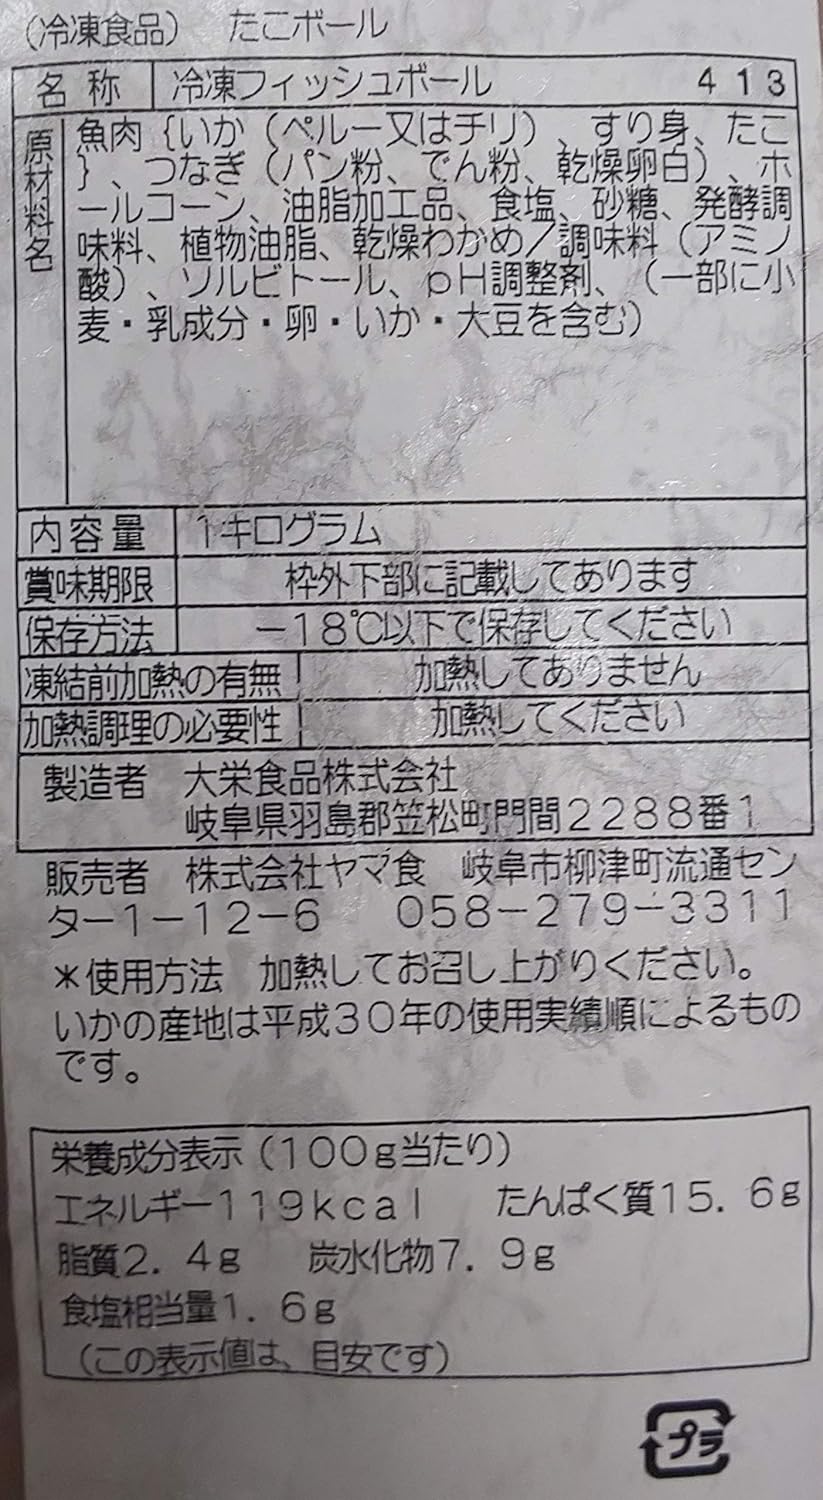 （冷凍食品）　たこボール
名称　冷凍フィッシュボール　４１３
原材料名
魚肉｛いか（ペルー又はチリ）、すり身、たこ
｝、つなぎ（パン粉、でん粉、乾燥卵白）、ホ
ールコーン、油脂加工品、食塩、砂糖、発酵調
味料、植物油脂、乾燥わかめ／調味料（アミノ
酸）、ソルビトール、ｐＨ調整剤、（一部に小
麦・乳成分・卵・いか・大豆を含む）
内容量　１キログラム
賞味期限　枠外下部に記載してあります
保存方法　－１８℃以下で保存してください
凍結前加熱の有無　加熱してありません
加熱調理の必要性　加熱してください
製造者　大栄食品株式会社
岐阜県羽島郡笠松町門間２２８８番１
販売者　株式会社ヤマ食　岐阜市柳津町流通セン
ター１－１２－６　０５８－２７９－３３１１
＊使用方法　加熱してお召し上がりください。
いかの産地は平成３０年の使用実績順によるもの
です。
栄養成分表示（１００ｇ当たり）
エネルギー１１９ｋｃａｌ　たんぱく質１５．６ｇ
脂質２．４ｇ　炭水化物７．９ｇ
食塩相当量１．６ｇ
（この表示値は、目安です）
プラ